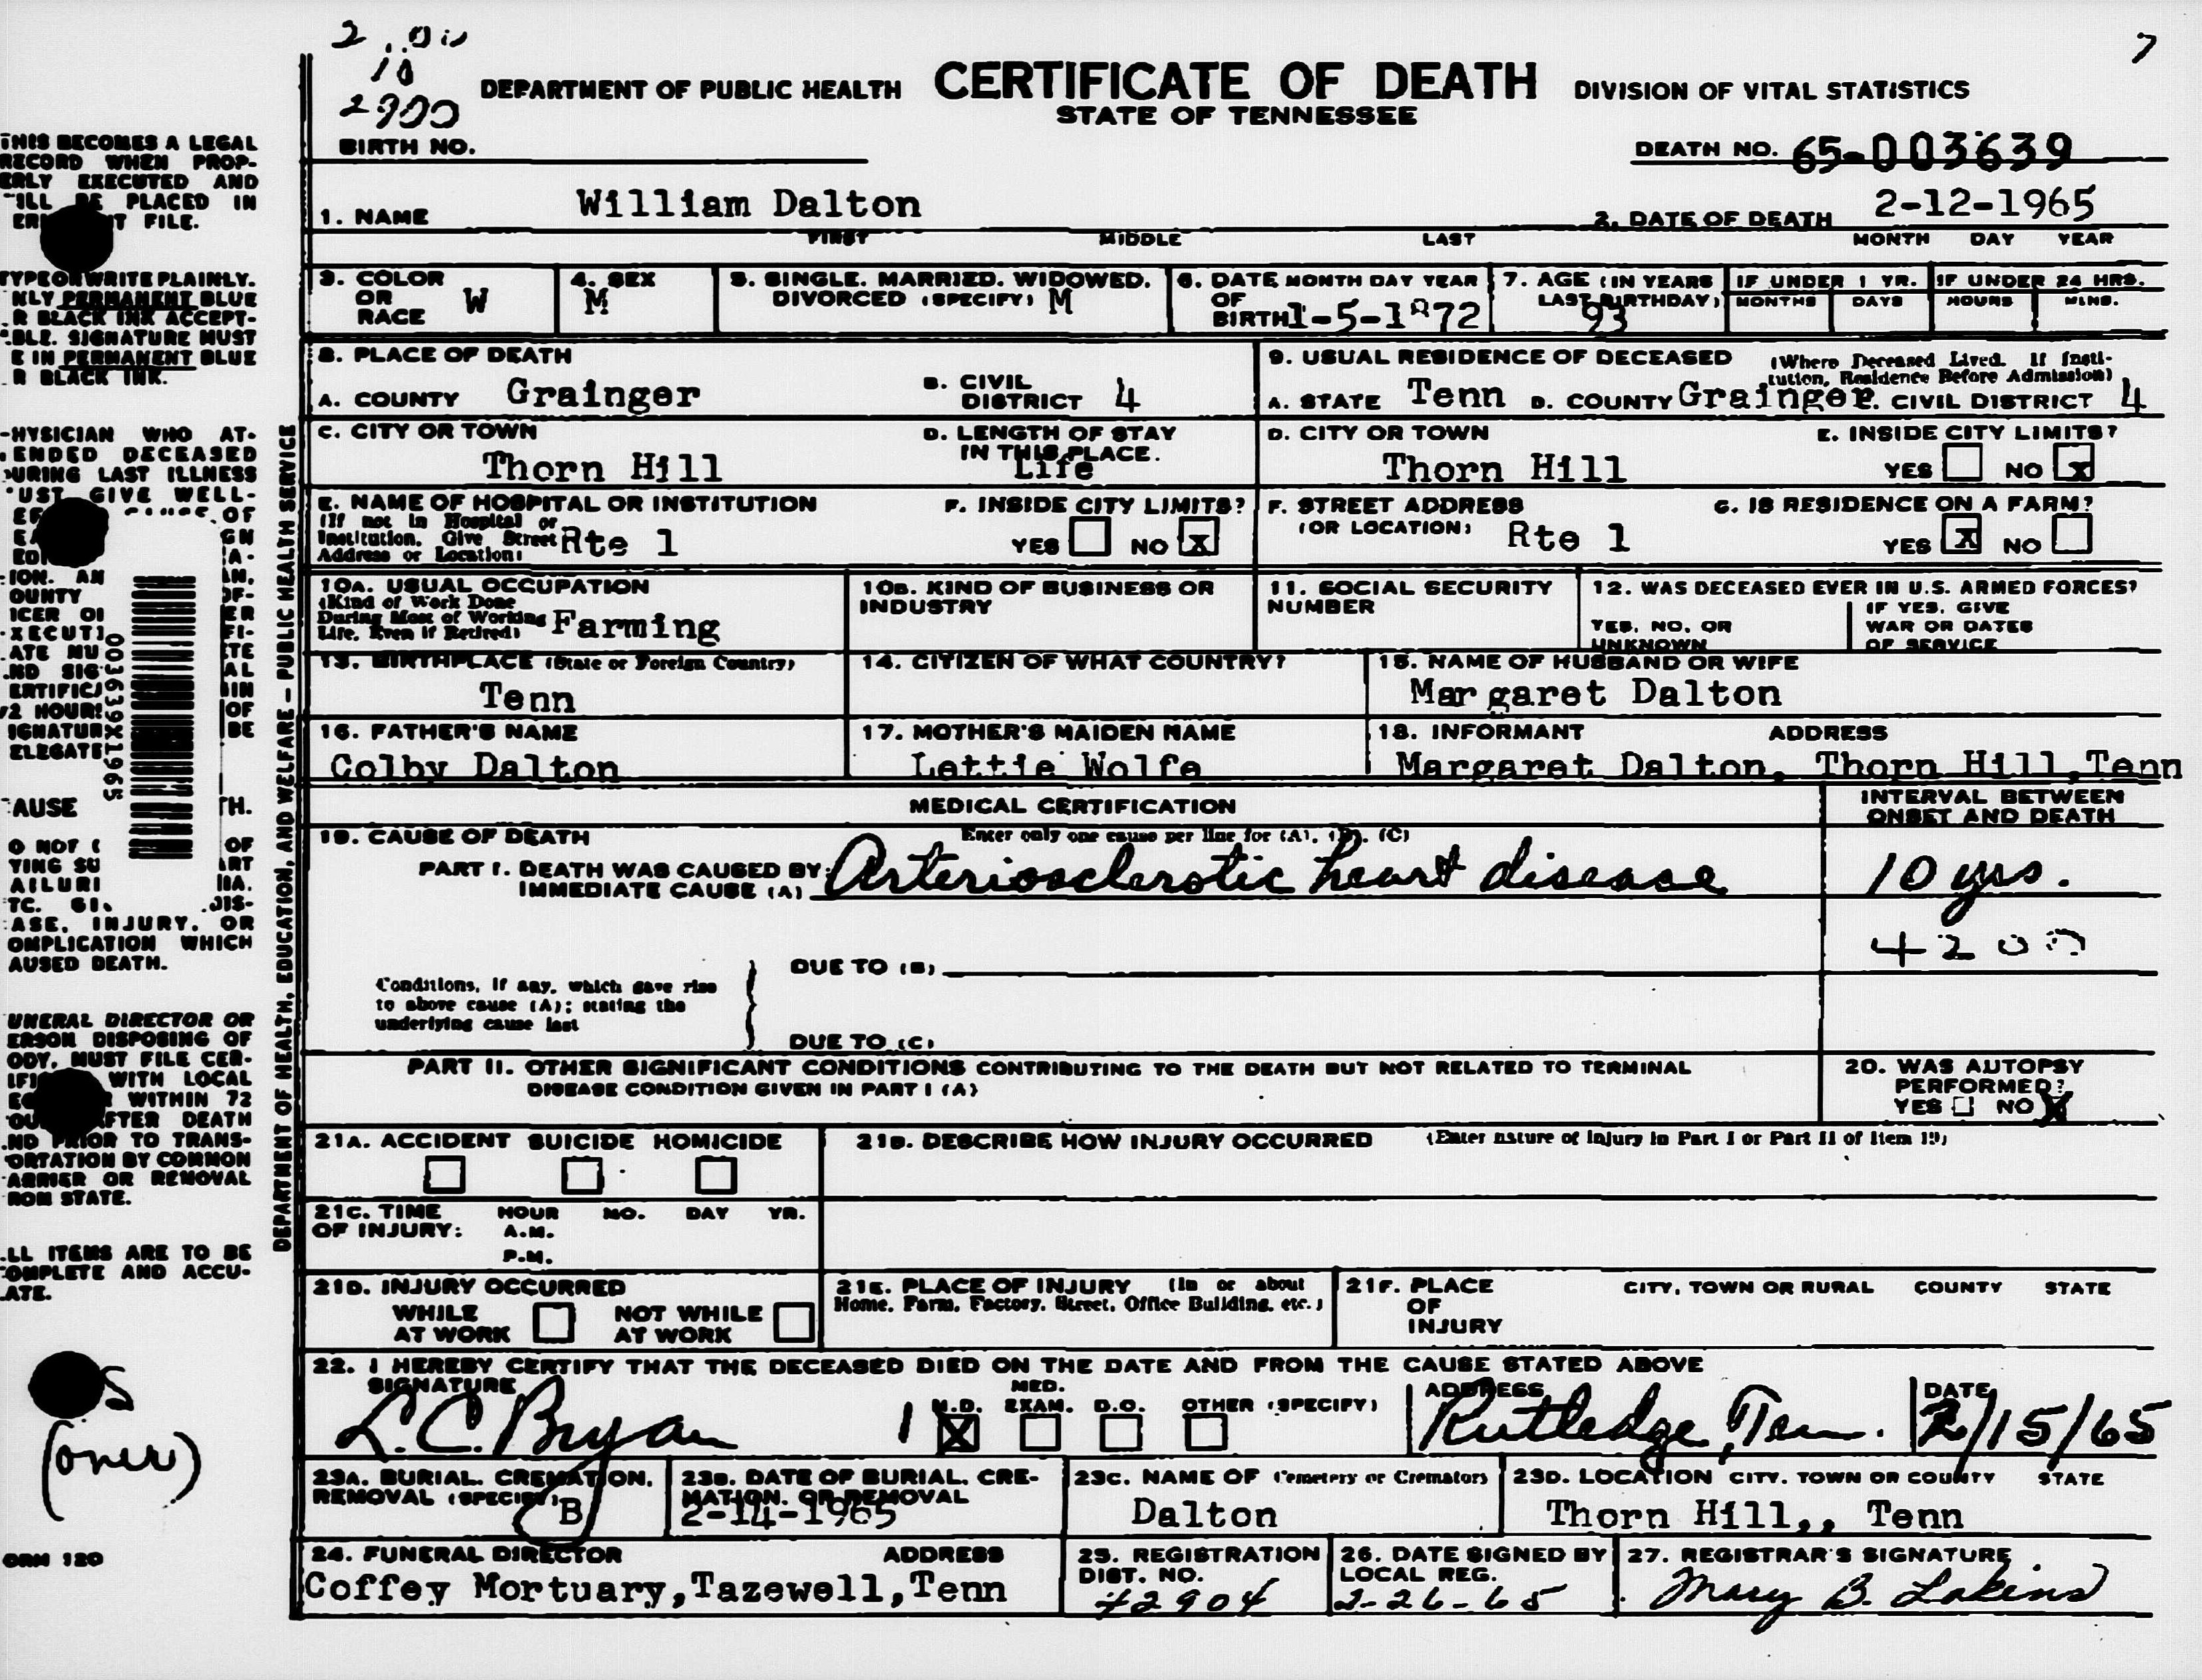 2.00
10
2900
7
DEPARTMENT OF PUBLIC HEALTH CERTIFICATE OF DEATH DIVISION OF VITAL STATISTICS
STATE OF TENNESSEE
BIRTH NO.
DEATH NO. 65-003639
1. NAME William Dalton 2. DATE OF DEATH 2-12-1965
FIRST MIDDLE LAST MONTH DAY YEAR
3. COLOR OR RACE W
4. SEX M
5. SINGLE, MARRIED, WIDOWED, DIVORCED (SPECIFY) M
6. DATE OF BIRTH MONTH DAY YEAR 1-5-1872
7. AGE (IN YEARS LAST BIRTHDAY) 93
IF UNDER 1 YR. MONTHS DAYS
IF UNDER 24 HRS. HOURS MINS.
8. PLACE OF DEATH
A. COUNTY Grainger B. CIVIL DISTRICT 4
9. USUAL RESIDENCE OF DECEASED (Where Deceased Lived. If Insti-
tution, Residence Before Admission)
A. STATE Tenn B. COUNTY Grainger C. CIVIL DISTRICT 4
C. CITY OR TOWN Thorn Hill
D. LENGTH OF STAY IN THIS PLACE. Life
D. CITY OR TOWN Thorn Hill
E. INSIDE CITY LIMITS? YES NO x
E. NAME OF HOSPITAL OR INSTITUTION
(If not in Hospital or
Institution, Give Street
Address or Location) Rte 1
F. INSIDE CITY LIMITS? YES NO X
F. STREET ADDRESS (OR LOCATION) Rte 1
G. IS RESIDENCE ON A FARM? YES X NO
10A. USUAL OCCUPATION
(Kind of Work Done
During Most of Working
Life, Even if Retired) Farming
10B. KIND OF BUSINESS OR INDUSTRY
11. SOCIAL SECURITY NUMBER
12. WAS DECEASED EVER IN U.S. ARMED FORCES?
YES, NO, OR UNKNOWN
IF YES, GIVE WAR OR DATES OF SERVICE
13. BIRTHPLACE (State or Foreign Country) Tenn
14. CITIZEN OF WHAT COUNTRY?
15. NAME OF HUSBAND OR WIFE Margaret Dalton
16. FATHER'S NAME Colby Dalton
17. MOTHER'S MAIDEN NAME Lettie Wolfe
18. INFORMANT ADDRESS
Margaret Dalton, Thorn Hill,Tenn
MEDICAL CERTIFICATION
INTERVAL BETWEEN ONSET AND DEATH
19. CAUSE OF DEATH Enter only one cause per line for (A), (B), (C)
PART I. DEATH WAS CAUSED BY:
IMMEDIATE CAUSE (A) Arteriosclerotic heart disease 10 yrs.
4200
DUE TO (B)
Conditions, if any, which gave rise
to above cause (A); stating the
underlying cause last
DUE TO (C)
PART II. OTHER SIGNIFICANT CONDITIONS CONTRIBUTING TO THE DEATH BUT NOT RELATED TO TERMINAL
DISEASE CONDITION GIVEN IN PART I (A)
20. WAS AUTOPSY PERFORMED?
YES NO X
21A. ACCIDENT SUICIDE HOMICIDE
21B. DESCRIBE HOW INJURY OCCURRED (Enter nature of injury in Part I or Part II of item 19)
21C. TIME OF INJURY: HOUR MO. DAY YR.
A.M.
P.M.
21D. INJURY OCCURRED
WHILE AT WORK NOT WHILE AT WORK
21E. PLACE OF INJURY (In or about
Home, Farm, Factory, Street, Office Building, etc.)
21F. PLACE OF INJURY CITY, TOWN OR RURAL COUNTY STATE
22. I HEREBY CERTIFY THAT THE DECEASED DIED ON THE DATE AND FROM THE CAUSE STATED ABOVE
SIGNATURE L.C. Bryan 1 M.D. X MED. EXAM. D.O. OTHER (SPECIFY)
ADDRESS Rutledge, Ten.
DATE 2/15/65
23A. BURIAL, CREMATION, REMOVAL (SPECIFY) B
23B. DATE OF BURIAL, CRE-
MATION, OR REMOVAL 2-14-1965
23C. NAME OF Cemetery or Crematory Dalton
23D. LOCATION CITY, TOWN OR COUNTY STATE
Thorn Hill,, Tenn
24. FUNERAL DIRECTOR ADDRESS
Coffey Mortuary,Tazewell,Tenn
25. REGISTRATION DIST. NO. 42904
26. DATE SIGNED BY LOCAL REG. 2-26-65
27. REGISTRAR'S SIGNATURE Mary B. Lakins
DEPARTMENT OF HEALTH, EDUCATION, AND WELFARE – PUBLIC HEALTH SERVICE
THIS BECOMES A LEGAL
RECORD WHEN PROP-
ERLY EXECUTED AND
PLACED IN
FILE.
TYPE OR WRITE PLAINLY.
NLY PERMANENT BLUE
R BLACK INK ACCEPT-
BLE. SIGNATURE MUST
E IN PERMANENT BLUE
R BLACK INK.
HYSICIAN WHO AT-
ENDED DECEASED
URING LAST ILLNESS
UST GIVE WELL-
003639X1965
ASE, INJURY, OR
OMPLICATION WHICH
AUSED DEATH.
UNERAL DIRECTOR OR
ERSON DISPOSING OF
ODY, MUST FILE CER-
WITH LOCAL
WITHIN 72
AFTER DEATH
ND PRIOR TO TRANS-
ORTATION BY COMMON
ARRIER OR REMOVAL
ROM STATE.
LL ITEMS ARE TO BE
OMPLETE AND ACCU-
ATE.
(over)
ORM 120